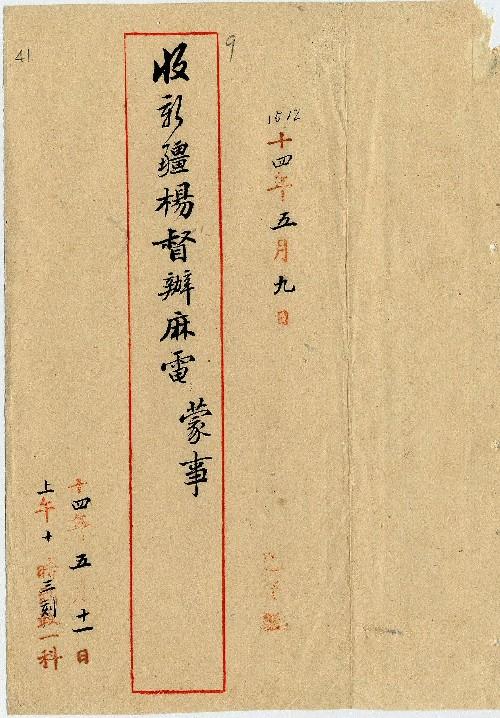 十四年五月九日
9
收新疆楊督辦麻電 蒙事
十四年五月十一日
上午十時三刻 一科
41